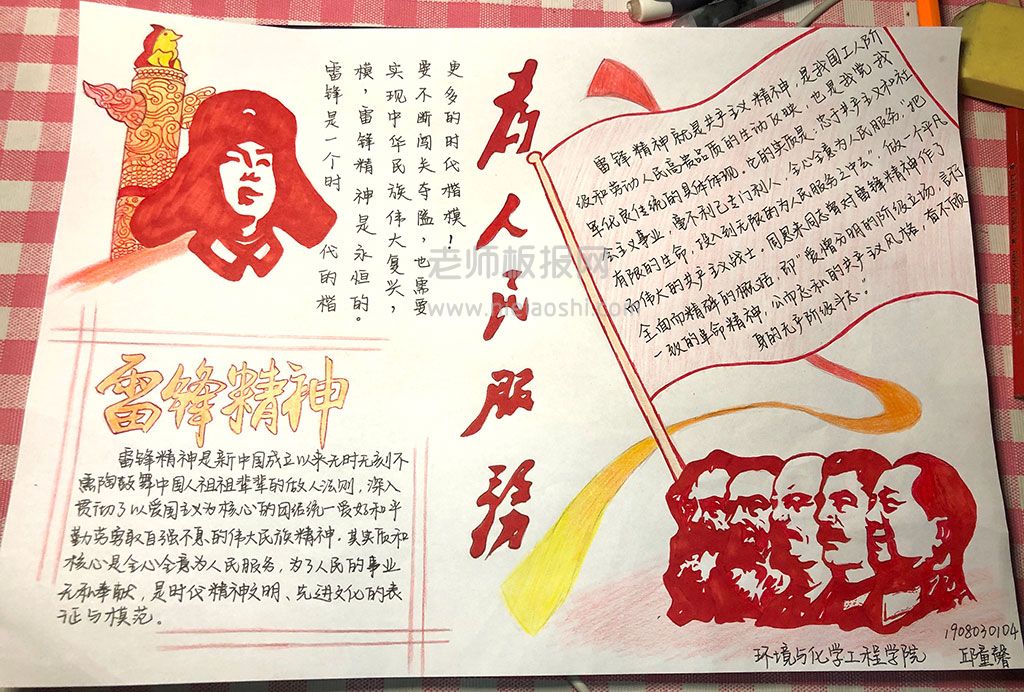 更多的时代楷模！
要不断闯关夺隘，也需要
实现中华民族伟大复兴，
模，雷锋精神是永恒的。
雷锋是一个时代的楷
为人民服务
雷锋精神就是共产主义精神，是我国工人阶
级和劳动人民高贵品质的生动反映，也是我党我
军优良传统的具体体现。它的实质是：忠于共产主义和社
会主义事业，毫不利己专门利人，全心全意为人民服务。“把
有限的生命，投入到无限的为人民服务之中去”做一个平凡
而伟大的共产主义战士，周恩来同志曾对雷锋精神作了
全面而精确的概括，即“爱憎分明的阶级立场，言行
一致的革命精神，公而忘私的共产主义风格，奋不顾
身的无产阶级斗志。”
老师板报网
雷锋精神
雷锋精神是新中国成立以来无时无刻不
熏陶鼓舞中国人祖祖辈辈的做人法则，深入
贯彻了以爱国主义为核心的团结统一爱好和平
勤劳勇敢自强不息的伟大民族精神。其实质和
核心是全心全意为人民服务，为了人民的事业
无私奉献，是时代精神文明、先进文化的表
征与模范。
1908030104
环境与化学工程学院 邱童馨